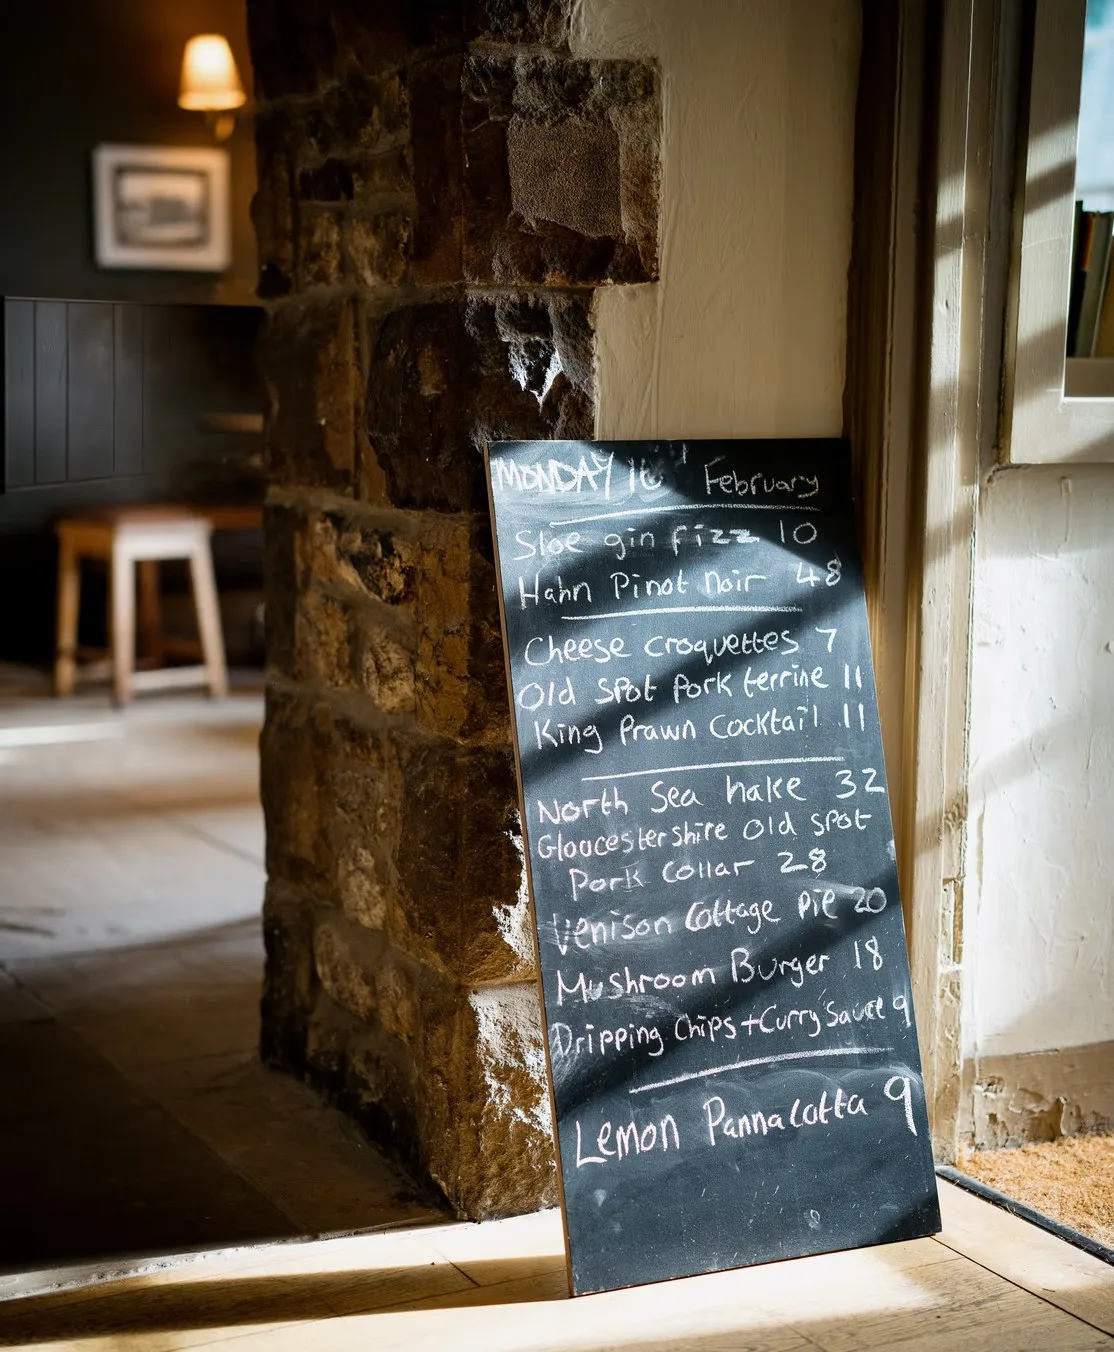 MONDAY 16 February
Sloe gin fizz 10
Hahn Pinot noir 48
Cheese Croquettes 7
Old Spot Pork terrine 11
King Prawn Cocktail 11
North Sea hake 32
Gloucestershire Old Spot
Pork Collar 28
Venison Cottage Pie 20
Mushroom Burger 18
Dripping Chips + Curry Sauce 9
Lemon Pannacotta 9